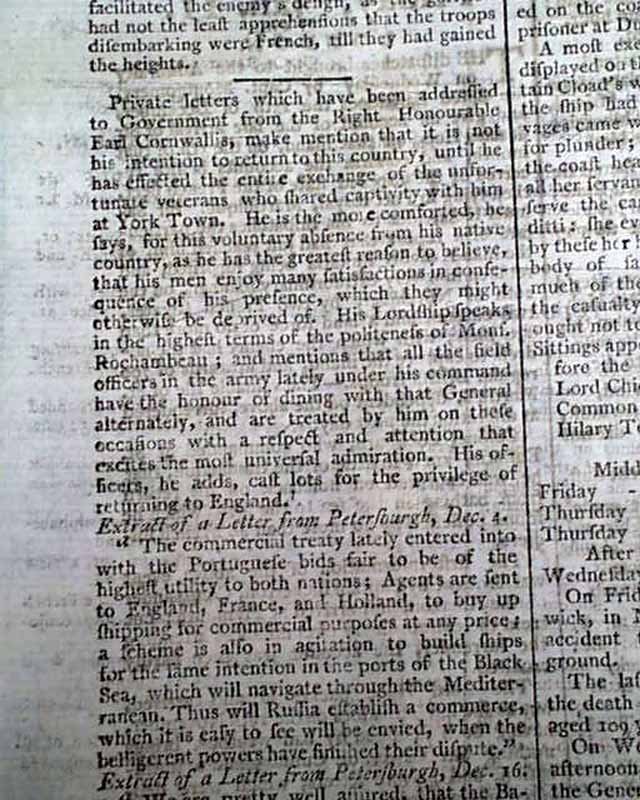 facilitated the enemy's design, as the
had not the leaſt apprehenſions that the troops
diſembarking were French, till they had gained
the heights.
Private letters which have been addreſſed
to Government from the Right Honourable
Earl Cornwallis, make mention that it is not
his intention to return to this country, until he
has effected the entire exchange of the unfor-
tunate veterans who ſhared captivity with him
at York Town. He is the more comforted, he
ſays, for this voluntary abſence from his native
country, as he has the greateſt reaſon to believe,
that his men enjoy many ſatisfactions in conſe-
quence of his preſence, which they might
otherwiſe be deprived of. His Lordſhip ſpeaks
in the higheſt terms of the politeneſs of Monſ.
Rochambeau; and mentions that all the field
officers in the army lately under his command
have the honour of dining with that General
alternately, and are treated by him on theſe
occaſions with a reſpect and attention that
excites the moſt univerſal admiration. His of-
ficers, he adds, caſt lots for the privilege of
returning to England.
Extract of a Letter from Peterſburgh, Dec. 4.
" The commercial treaty lately entered into
with the Portugueſe bids fair to be of the
higheſt utility to both nations; Agents are ſent
to England, France, and Holland, to buy up
ſhipping for commercial purpoſes at any price;
a ſcheme is alſo in agitation to build ſhips
for the ſame intention in the ports of the Black
Sea, which will navigate through the Mediter-
ranean. Thus will Ruſſia eſtabliſh a commerce,
which it is eaſy to ſee will be envied, when the
belligerent powers have finiſhed their diſpute."
Extract of a Letter from Peterſburgh, Dec. 16.
" We are pretty well aſſured, that the Ba-
ed on the
priſoner at
A moſt
diſplayed on
tain Cload's
the ſhip had
vages came
for plunder;
the coaſt
all her
ſerve the
ditti; ſhe
by theſe
body of
much of
the caſualty
ought not to
Sittings
fore the
Lord
Common
Hilary
Friday -
Thurſday
Thurſday
After
Wedneſday
On
wick, in
accident
ground.
The
the death
aged 109
On
afternoon
the